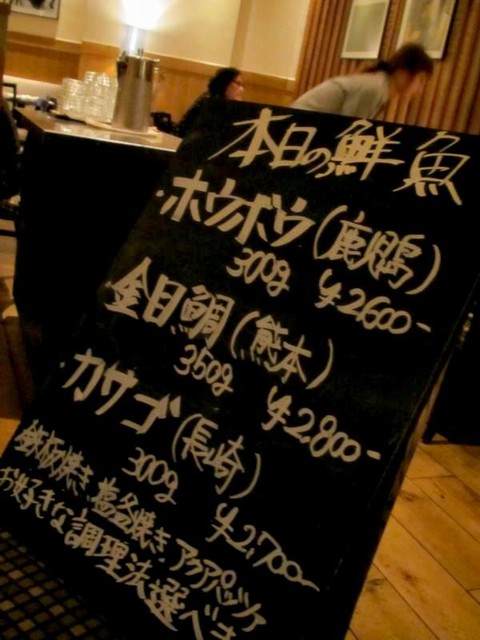 本日の鮮魚
・ホウボウ(鹿児島)
300g ¥2600-
・金目鯛(熊本)
350g ¥2,800-
・カサゴ(長崎)
300g ¥2,700-
鉄板焼き・塩釜焼き・アクアパッツァ
お好きな調理法選べま